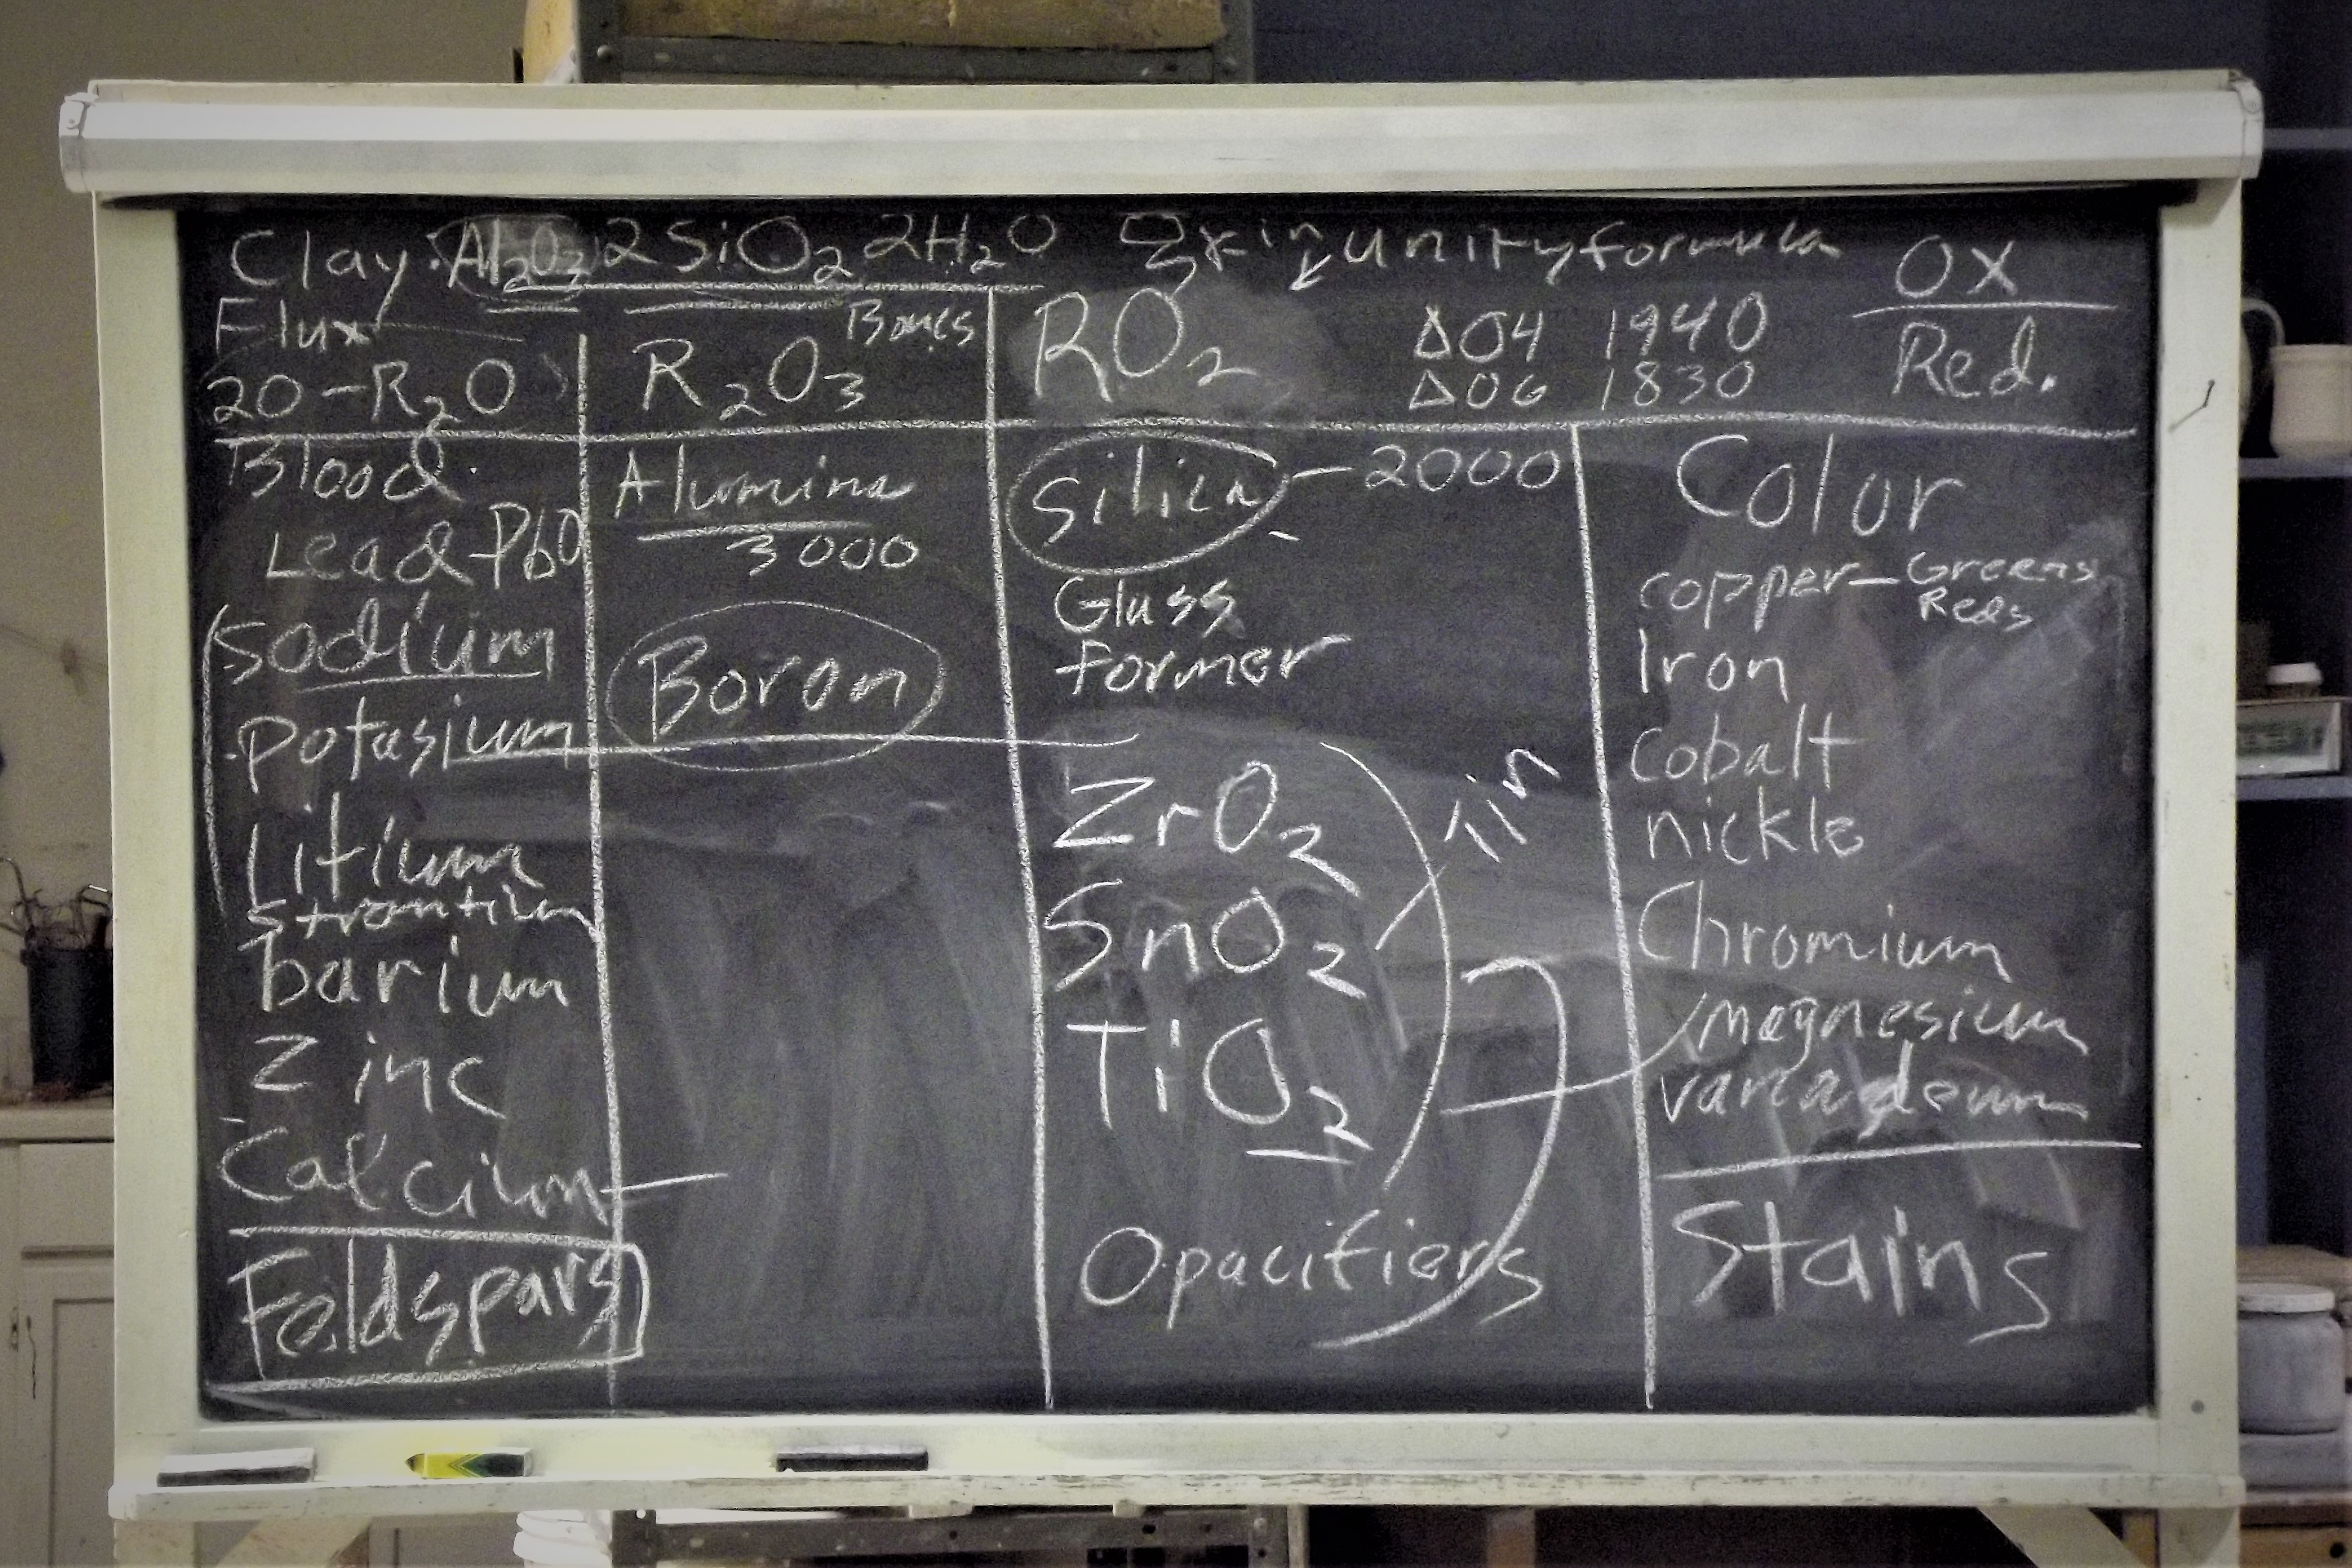 Clay. Al2O3 2SiO2 2H2O
unity formula
OX
Red.
Flux
20-R2O
Bones
R2O3
RO2
Δ04 1940
Δ06 1830
Blood
Lead-PbO
Sodium
Potasium
Litium
Strontium
barium
Zinc
Calcium
Feldspars
Alumina
3000
Boron
Silica - 2000
Glass
former
ZrO2
Tin
SnO2
TiO2
Opacifiers
Color
copper - Greens
Reds
Iron
Cobalt
nickle
Chromium
magnesium
Stains